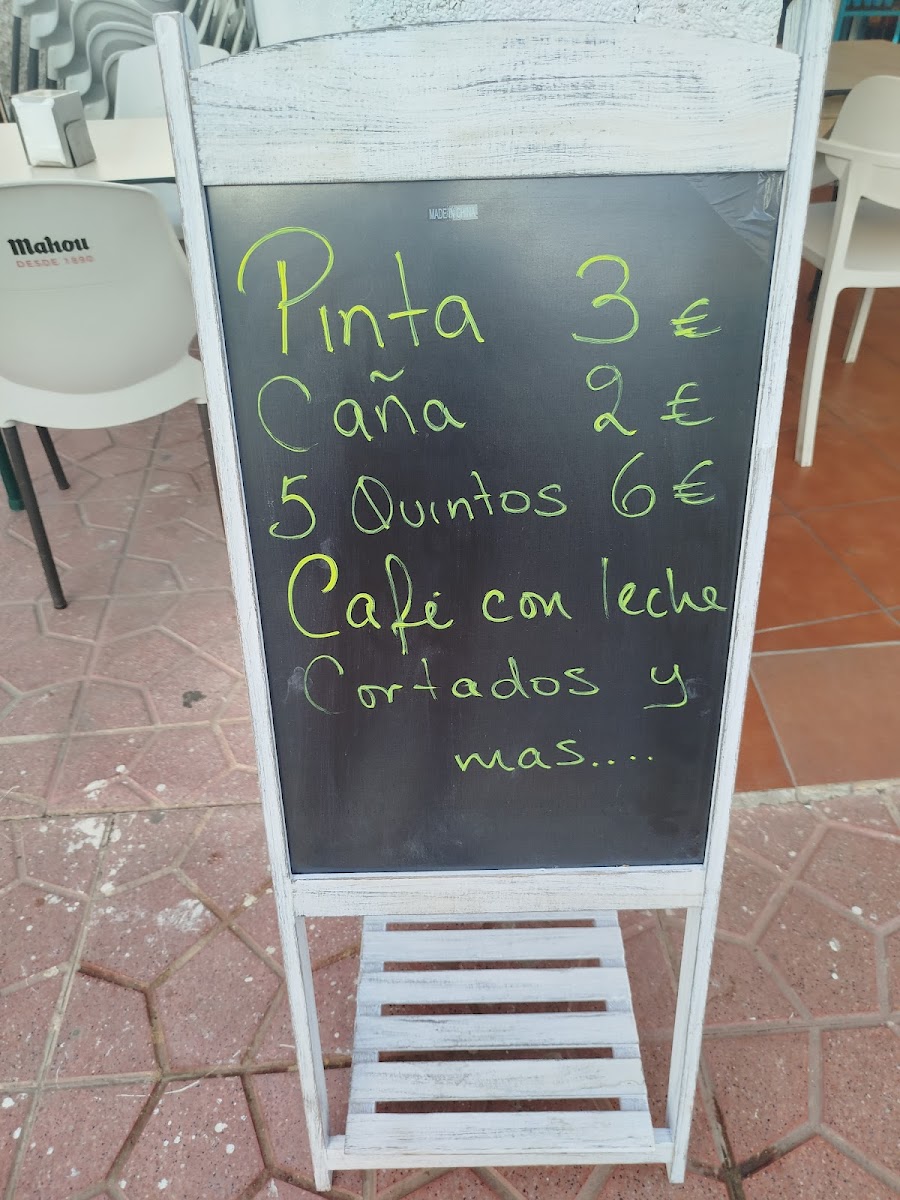 MADE IN CHINA
Mahou
DESDE 1890
Pinta 3 €
Caña 2 €
5 Quintos 6 €
Café con leche
Cortados y
mas....